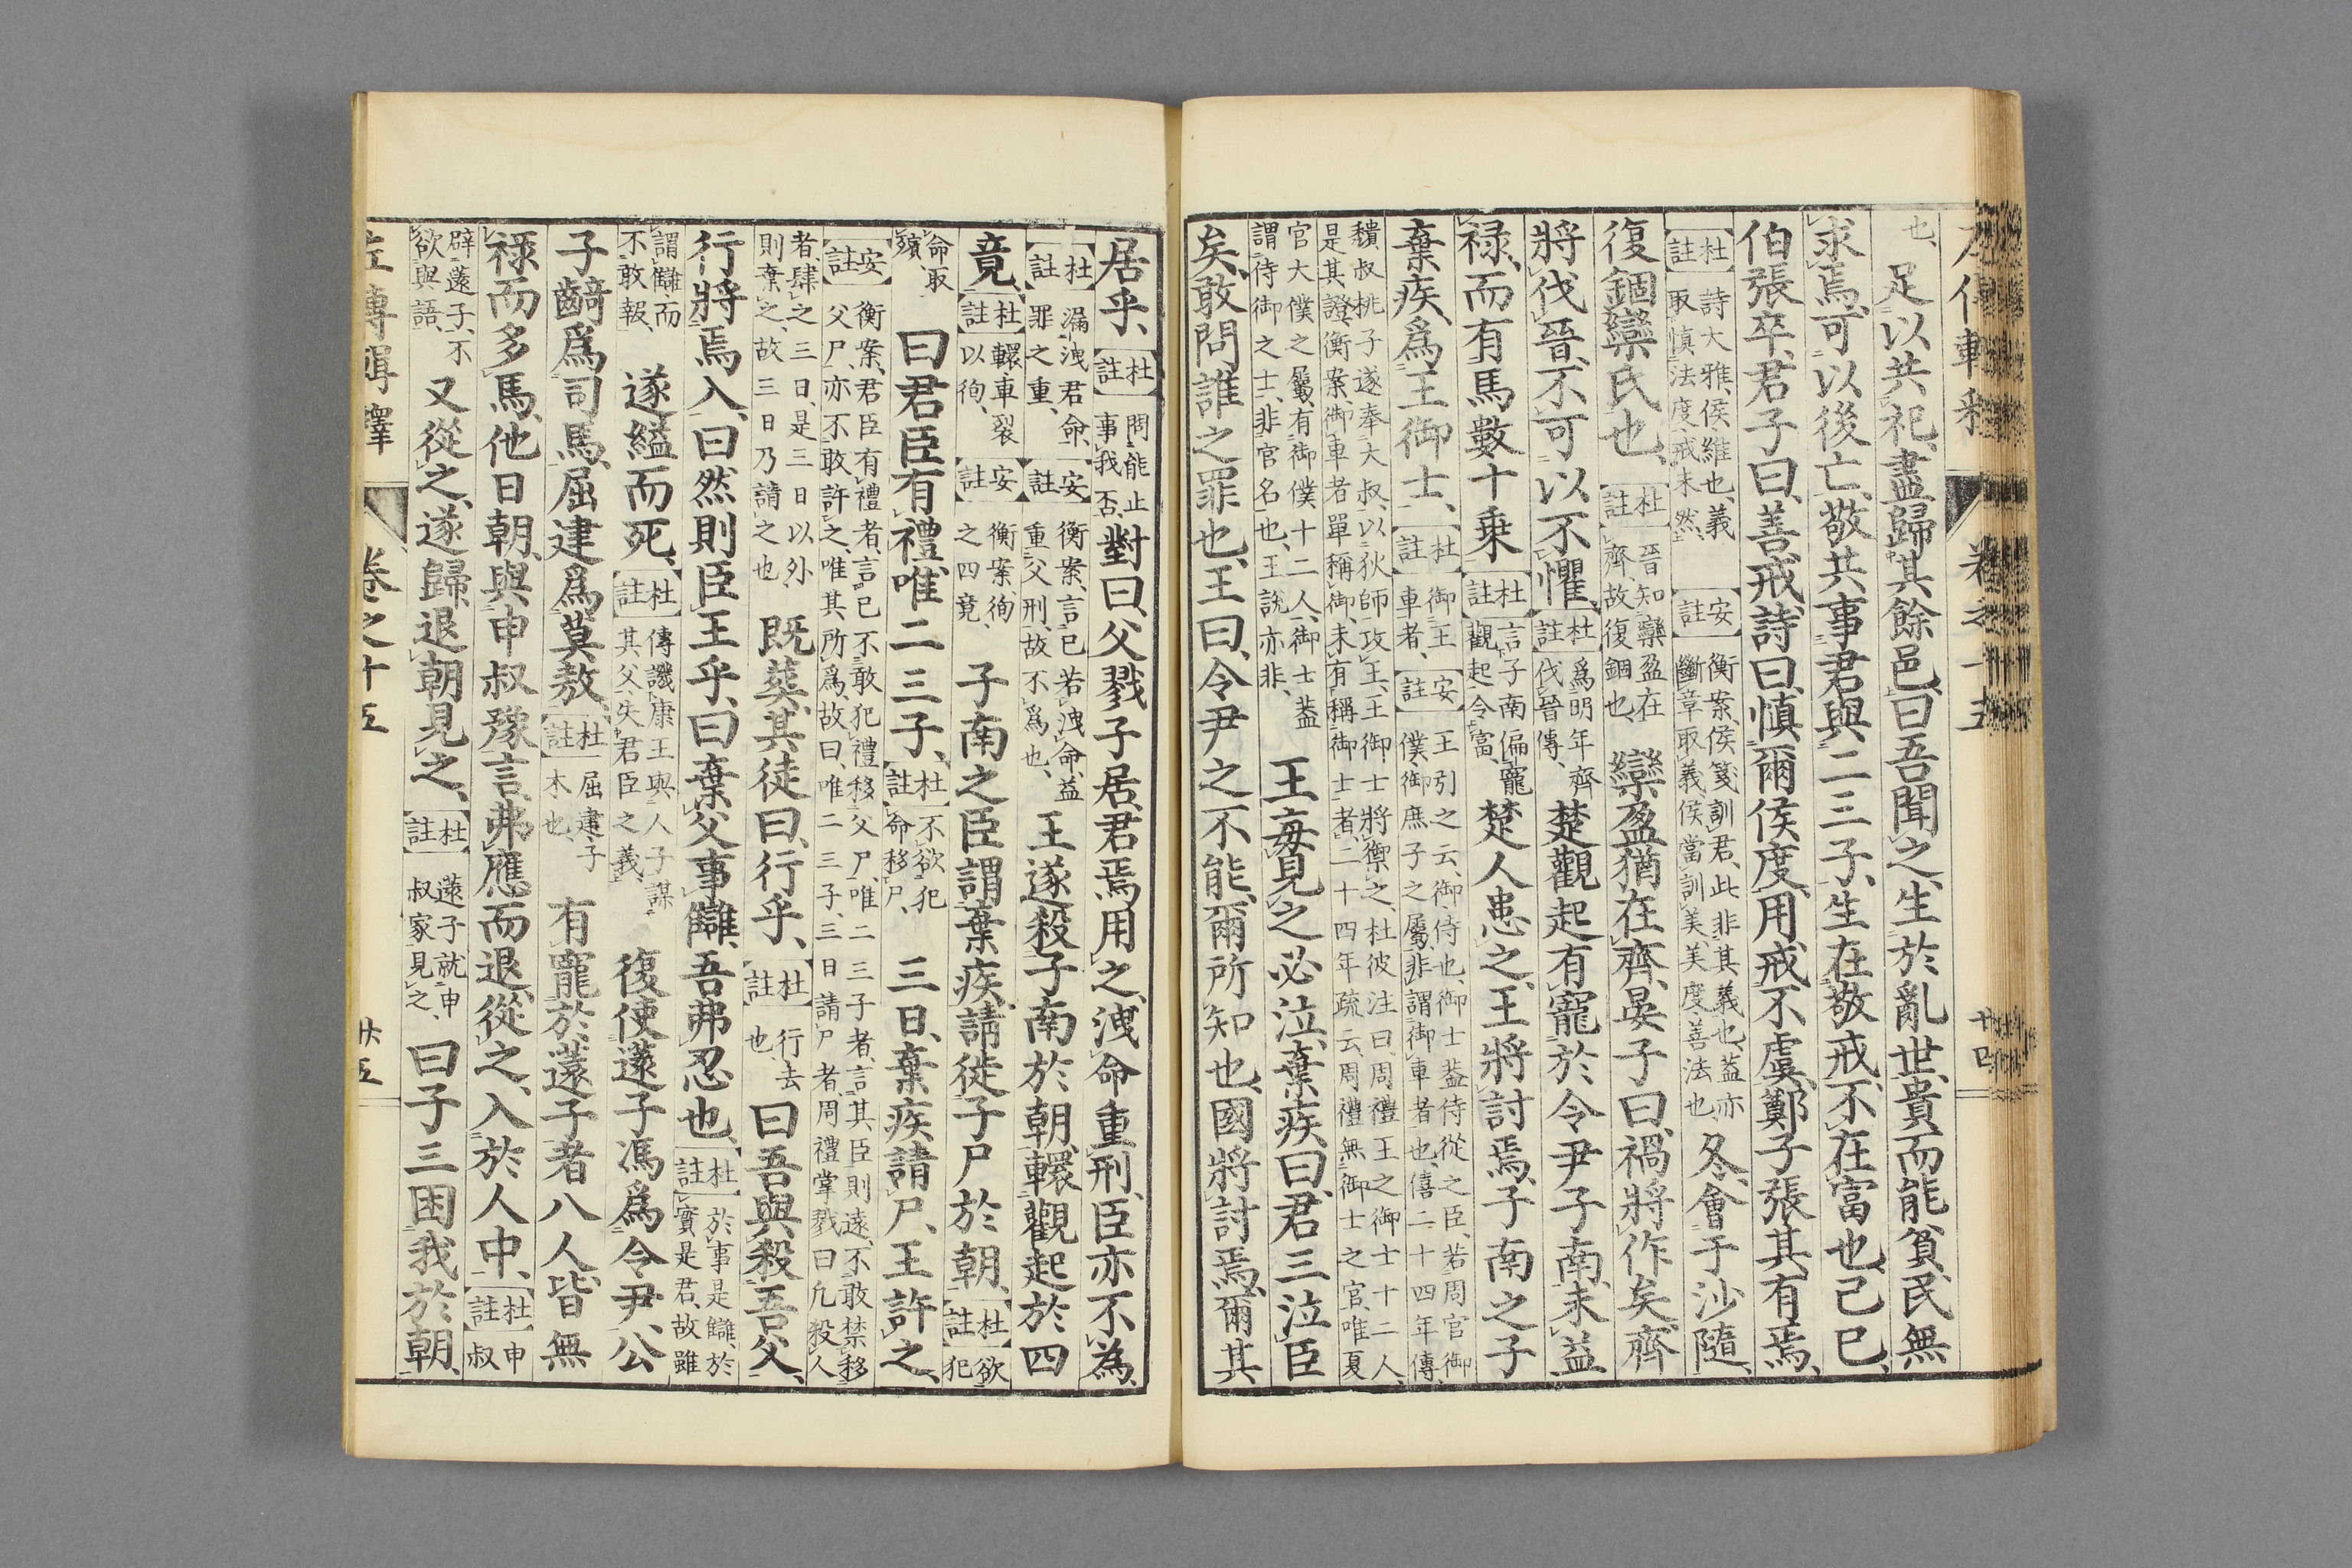 左傳輯釋 卷之十五 廿四
也、足以共祀、盡歸其餘邑、曰、吾聞之、生於亂世、貴而能貧、民無
求焉、可以後亡、敬共事君、與二三子、生在敬戒、不在富也、己巳、
伯張卒、君子曰、善戒、詩曰、慎爾侯度、用戒不虞、鄭子張其有焉、
杜註 詩大雅、侯維也、義
取慎法度、戒未然、
安註 衡案、侯箋訓君、此非其義也、蓋亦
斷章取義、侯當訓美、美度善法也、
冬、會于沙隨、
復錮欒氏也、
杜註 晉知欒盈在
齊、故復錮也、
欒盈猶在齊、晏子曰、禍將作矣、齊
將伐晉、不可以不懼、
杜註 爲明年齊
伐晉傳、
楚觀起有寵於令尹子南、未益
祿、而有馬數十乘、
杜註 言子南偏寵
觀起、令富、
楚人患之、王將討焉、子南之子
棄疾、爲王御士、
杜註 御王
車者、
安註 王引之云、御侍也、御士蓋侍從之臣、若周官御
僕御庶子之屬、非謂御車者也、僖二十四年傳、
頹叔桃子遂奉大叔、以狄師攻王、王御士將禦之、杜彼注曰、周禮王之御士十二人、
是其證、衡案、御車者、單稱御、未有稱御士者、二十四年疏云、周禮無御士之官、唯夏
官大僕之屬、有御僕十二人、御士蓋
謂侍御之士、非官名也、王說亦非、
王毎見之必泣、棄疾曰、君三泣臣
矣、敢問誰之罪也、王曰、令尹之不能、爾所知也、國將討焉、爾其
居乎、
杜註 問能止
事我否、
對曰、父戮子居、君焉用之、洩命重刑、臣亦不為、
杜註 漏洩君命、
罪之重、
安註 衡案、言已若洩命、益
重父刑、故不爲也、
王遂殺子南於朝、轘觀起於四
竟、
杜註 轘車裂
以徇、
安註 衡案、徇
之四竟、
子南之臣謂棄疾、請徙子尸於朝、
杜註 欲犯
命取
殯、
曰君臣有禮、唯二三子、
杜註 不欲犯
命移尸、
三日、棄疾請尸、王許之、
安註 衡案、君臣有禮者、言已不敢犯禮移父尸、唯二三子者、言其臣則遠、不敢禁移
父尸、亦不敢許之、唯其所爲、故曰、唯二三子、三日請尸者、周禮掌戮曰、凡殺人
者、肆之三日、是三日以外、
則棄之、故三日乃請之也、
既葬、其徒曰、行乎、
杜註 行去
也、
曰吾與殺吾父、
行將焉入、曰然則臣王乎、曰棄父事讎、吾弗忍也、
杜註 於事是讎、於
實是君、故雖
謂讎而
不敢報、
遂縊而死、
杜註 傳譏康王與人子謀
其父、失君臣之義、
復使薳子馮爲令尹、公
子齮爲司馬、屈建爲莫敖、
杜註 屈建子
木也、
有寵於薳子者八人、皆無
祿而多馬、他日朝、與申叔豫言、弗應而退、從之、入於人中、
杜註 申叔
辟薳子、不
欲與語、
又從之、遂歸、退朝見之、
杜註 薳子就申
叔家見之、
曰子三困我於朝、
左傳輯釋 卷之十五 廿五